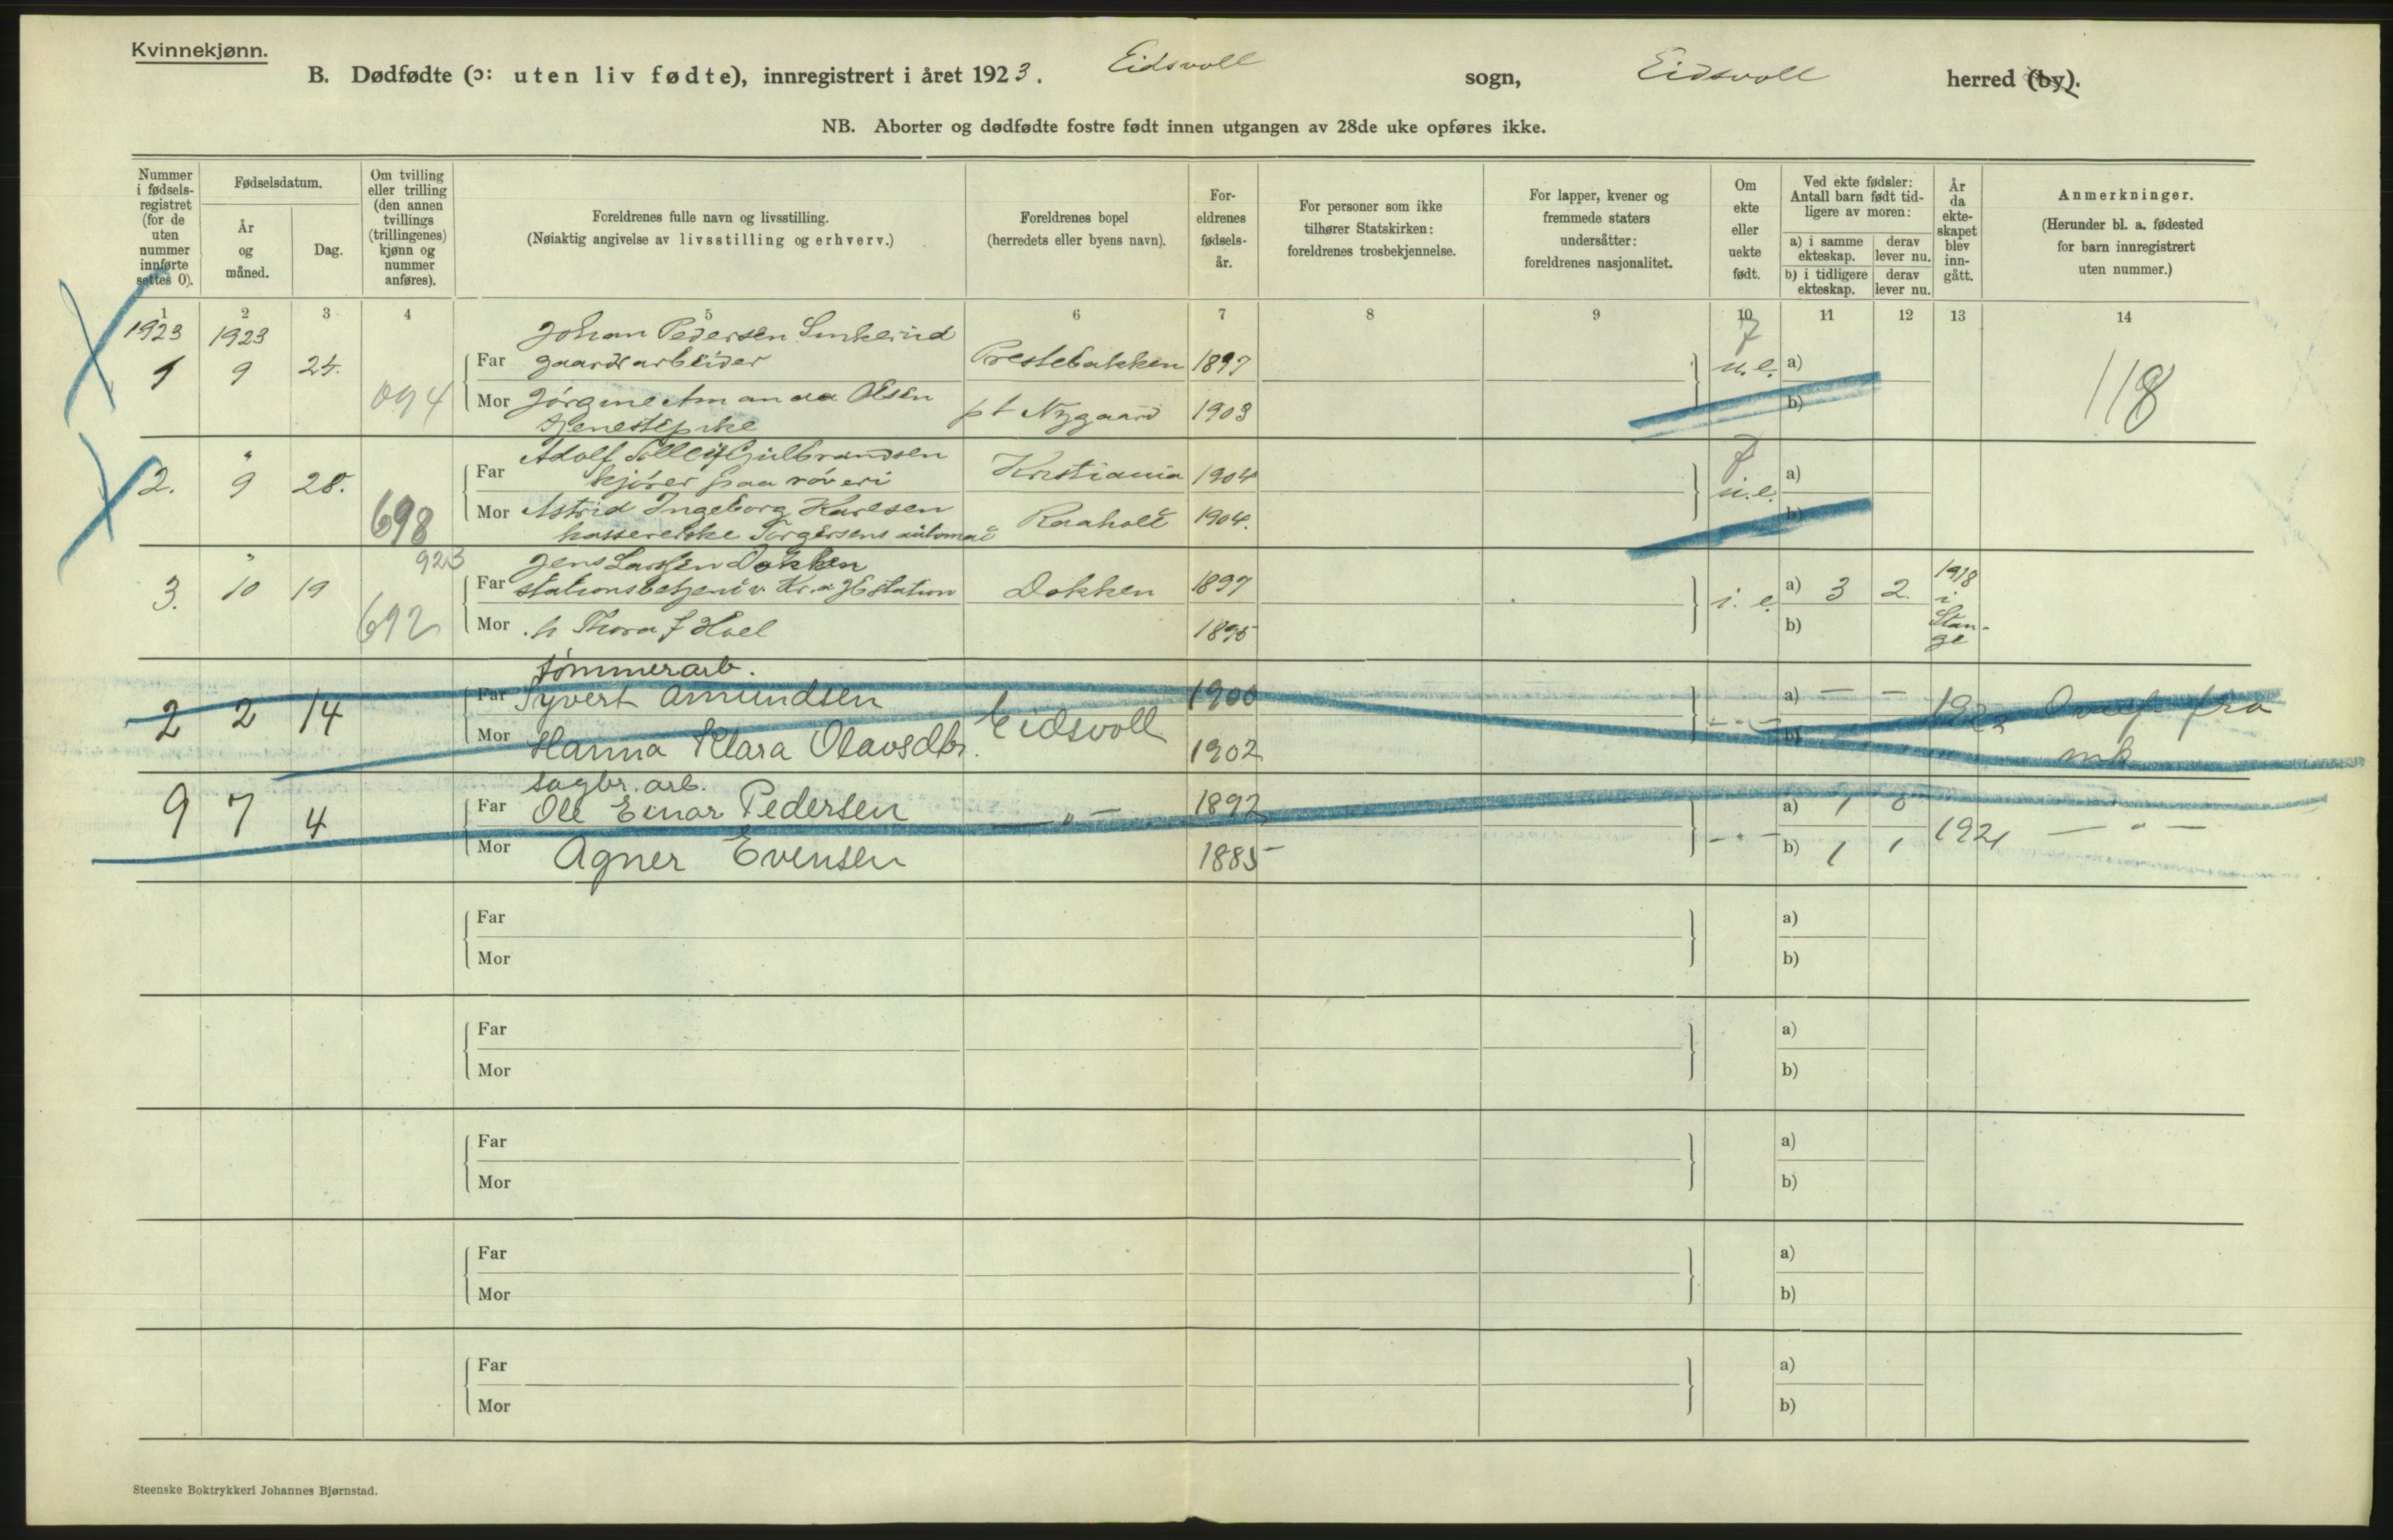 Kvinnekjønn.
B. Dødfødte (ɔ: uten liv fødte), innregistrert i året 1923. Eidsvoll sogn, Eidsvoll herred (by).
NB. Aborter og dødfødte fostre født innen utgangen av 28de uke opføres ikke.
Nummer i fødsels- registret (for de uten nummer innførte settes 0).
Fødselsdatum.
År og måned.
Dag.
Om tvilling eller trilling (den annen tvillings (trillingenes) kjønn og nummer anføres).
Foreldrenes fulle navn og livsstilling.
(Nøiaktig angivelse av livsstilling og erhverv.)
Foreldrenes bopel
(herredets eller byens navn).
For- eldrenes fødsels- år.
For personer som ikke tilhører Statskirken: foreldrenes trosbekjennelse.
For lapper, kvener og fremmede staters undersåtter: foreldrenes nasjonalitet.
Om ekte eller uekte født.
Ved ekte fødsler: Antall barn født tid- ligere av moren:
a) i samme ekteskap. derav lever nu.
b) i tidligere ekteskap. derav lever nu.
År da ekte- skapet blev inn- gått.
Anmerkninger.
(Herunder bl. a. fødested for barn innregistrert uten nummer.)
1 2 3 4 5 6 7 8 9 10 11 12 13 14
1923 1923 Johan Pedersen
1 9 24. Far gaardsarbeider Prestebakken 1897 u.e. a)
094 Mor Jörgine Amanda Olsen pt Nygaard 1903 b) 118
tjenestepike
" Adolf Gulbrandsen
2. 9 28. Far kjörer paa Kristiania 1904 u.e. a)
698 Mor Astrid Ingeborg Karlsen Raaholt 1904. b)
Torgersens automat
923
" Jens Larsen Dokken
3. 10 19 Far Dokken 1897 i. e. a) 3 2. 1918 i Stan- ge
692 Mor h Thora J Hoel 1895 b)
tömmerarb.
2 2 14 Far Syvert Amundsen Eidsvoll 1900 a) — — 192 Overf fra
Mor Hanna Klara Olavsdtr. 1902 — " — b) mk
sagbr. arb.
9 7 4 Far Ole Einar Pedersen — " — 1892 a) 1 0 1921 — " —
Mor Agner Evensen 1885 — " — b) 1 1
Far a)
Mor b)
Far a)
Mor b)
Far a)
Mor b)
Far a)
Mor b)
Far a)
Mor b)
Steenske Boktrykkeri Johannes Bjørnstad.